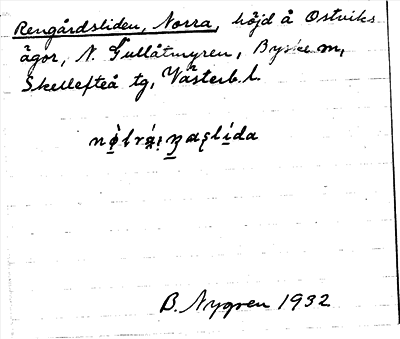 Rengårdsliden, Norra, höjd å Ostviks
ägor, N. Gullåtmyren, Byske sn,
Skellefteå tg, Västerb. l.
B. Nygren 1932